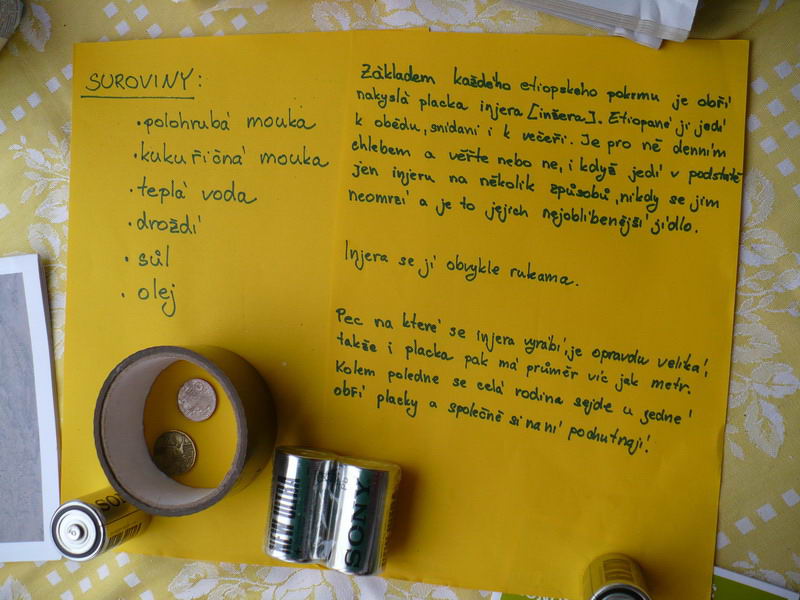 SUROVINY:
• polohrubá mouka
• kukuřičná mouka
• teplá voda
• droždí
• sůl
• olej
Základem každého etiopského pokrmu je obří
nakyslá placka injera [inšera]. Etiopané ji jedí
k obědu, snídani i k večeři. Je pro ně denním
chlebem a věřte nebo ne, i když jedí v podstatě
jen injeru na několik způsobů, nikdy se jim
neomrzí a je to jejich nejoblíbenější jídlo.
Injera se jí obvykle rukama.
Pec na které se injera vyrábí, je opravdu veliká,
takže i placka pak má průměr víc jak metr.
Kolem poledne se celá rodina sejde u jedné
obří placky a společně si na ní pochutnají!
SONY
SONY